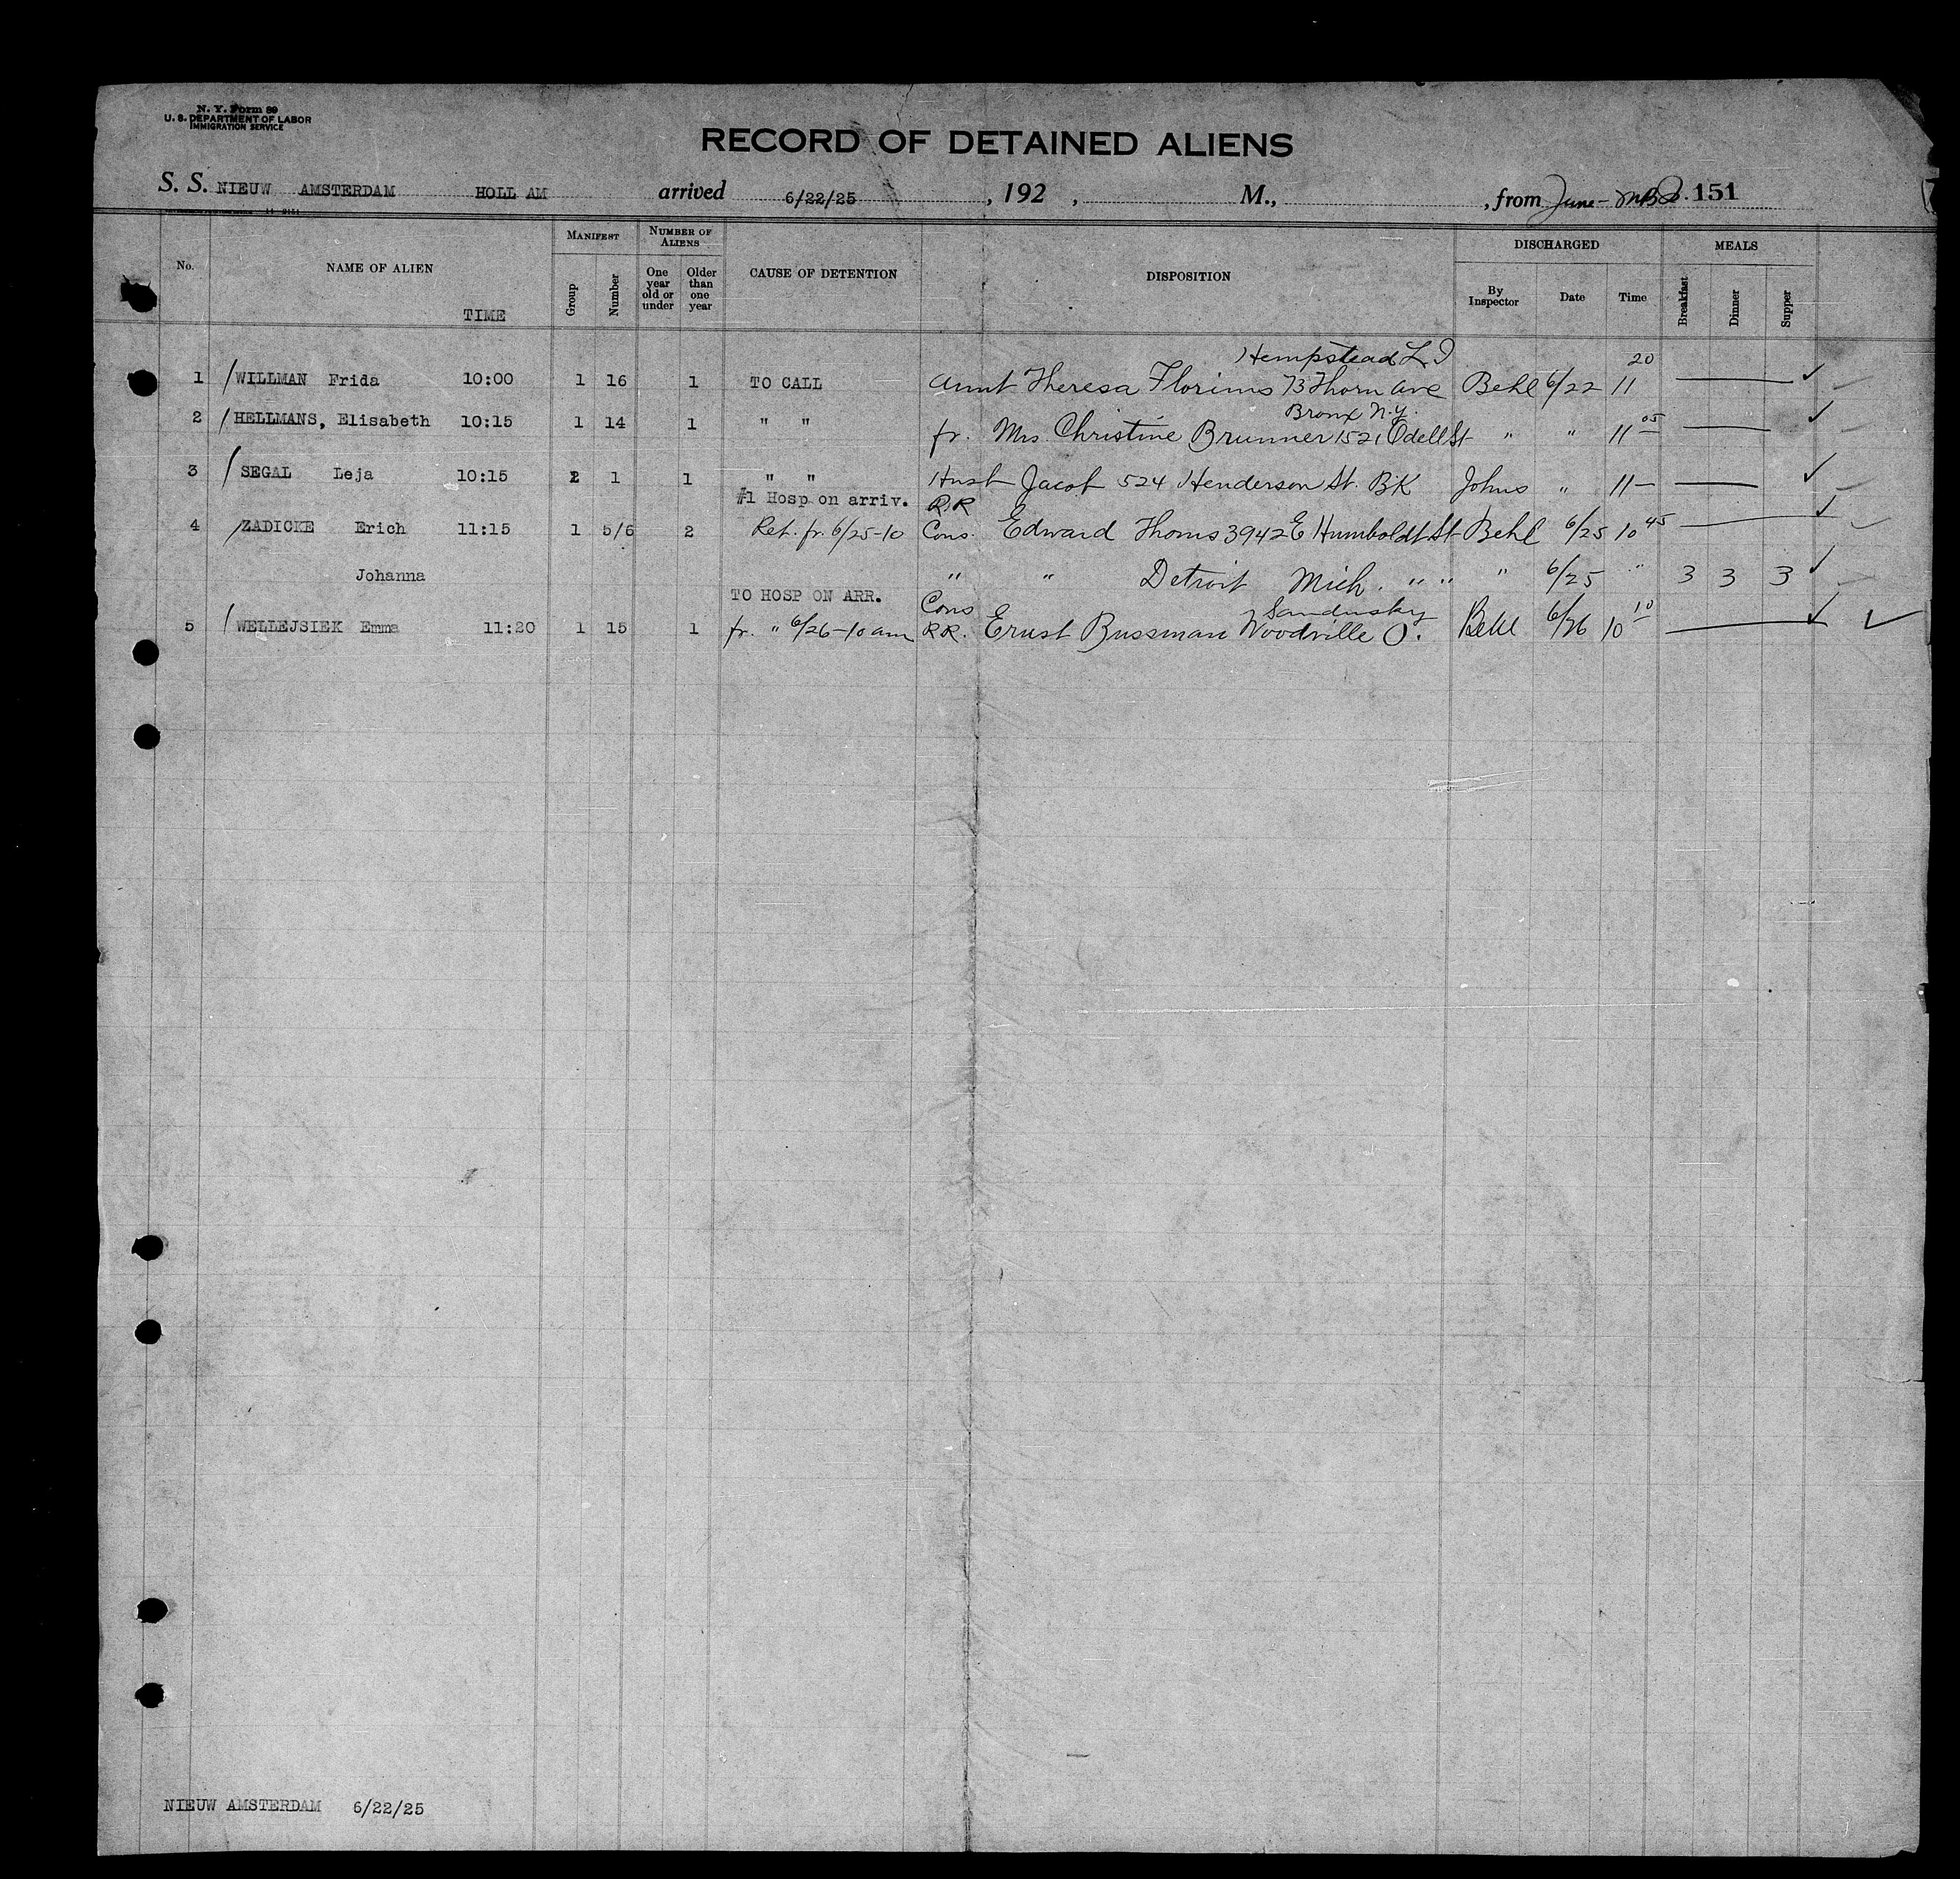 N. Y. Form 89
U. S. DEPARTMENT OF LABOR
IMMIGRATION SERVICE
RECORD OF DETAINED ALIENS
S. S. NIEUW AMSTERDAM HOLL AM arrived 6/22/25 , 192 , M., , from June- 151
No. NAME OF ALIEN TIME MANIFEST Group Number NUMBER OF ALIENS One year old or under Older than one year CAUSE OF DETENTION DISPOSITION DISCHARGED By Inspector Date Time MEALS Breakfast Dinner Supper
Hempstead L I
1 / WILLMAN Frida 10:00 1 16 1 TO CALL Aunt Theresa Florims 73 Thorn Ave Behl 6/22 11 20 ✓
Bronx N.Y.
2 / HELLMANS, Elisabeth 10:15 1 14 1 " " fr. Mrs. Christine Brunner 1521 Odell St " " 11 05 ✓
3 / SEGAL Leja 10:15 2 1 1 " " Husb Jacob 524 Henderson St. BK Johns " 11 — ✓
#1 Hosp on arriv. RR
4 / ZADICKE Erich 11:15 1 5/6 2 Ret. fr. 6/25-10 Cons. Edward Thoms 3942 E Humboldt St Behl 6/25 10 45 ✓
Johanna " " Detroit Mich. " " " 6/25 " 3 3 3 ✓
TO HOSP ON ARR. Cons Sandusky
5 / WELLEJSIEK Emma 11:20 1 15 1 fr. " 6/26-10 am RR. Ernst Bussman Woodville O. Behl 6/26 10 10 ✓ ✓
NIEUW AMSTERDAM 6/22/25